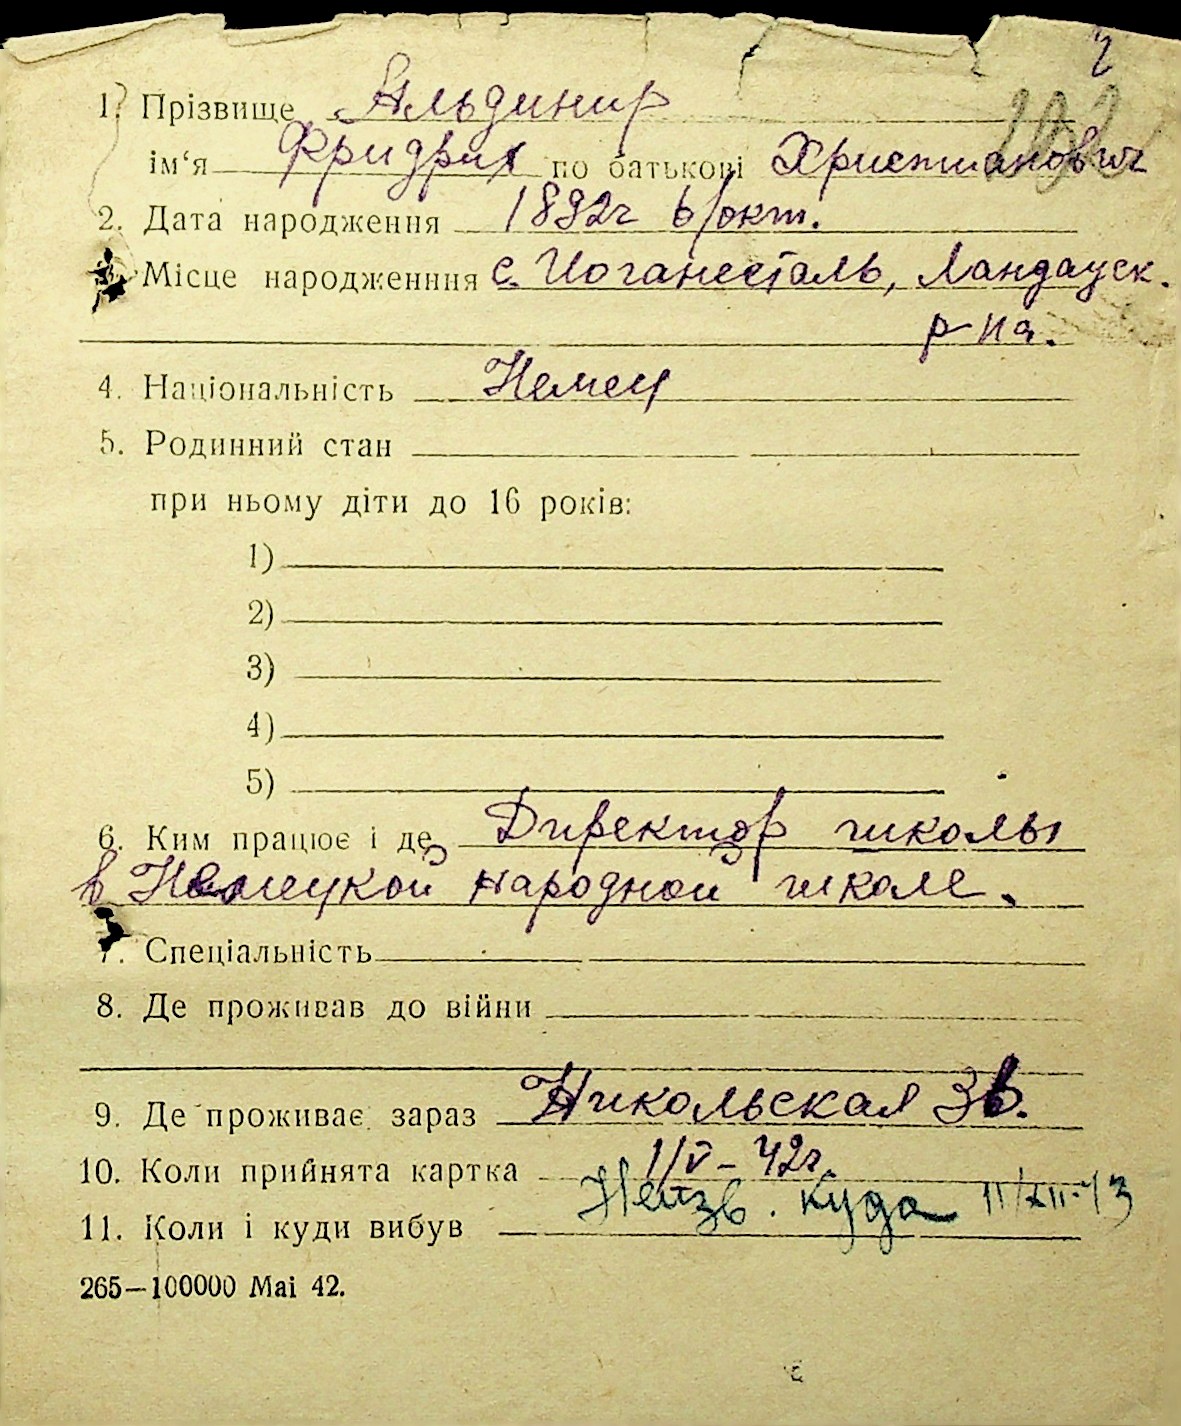 2
1. Прізвище Альдинир
162
ім‘я Фридрих по батькові Християнович
2. Дата народження 1892г 6/окт.
3. Місце народженння с. Иоганесталь, Ландауск.
р-на.
4. Національність Немец
5. Родинний стан
при ньому діти до 16 років:
1)
2)
3)
4)
5)
6. Ким працює і де Директор школы
в Немецкой народной школе.
7. Спеціальність
8. Де проживав до війни
9. Де проживає зараз Никольская 36.
10. Коли прийнята картка 1/V – 42г.
11. Коли і куди вибув Неизв. куда 11/XII-43
265—100000 Mai 42.